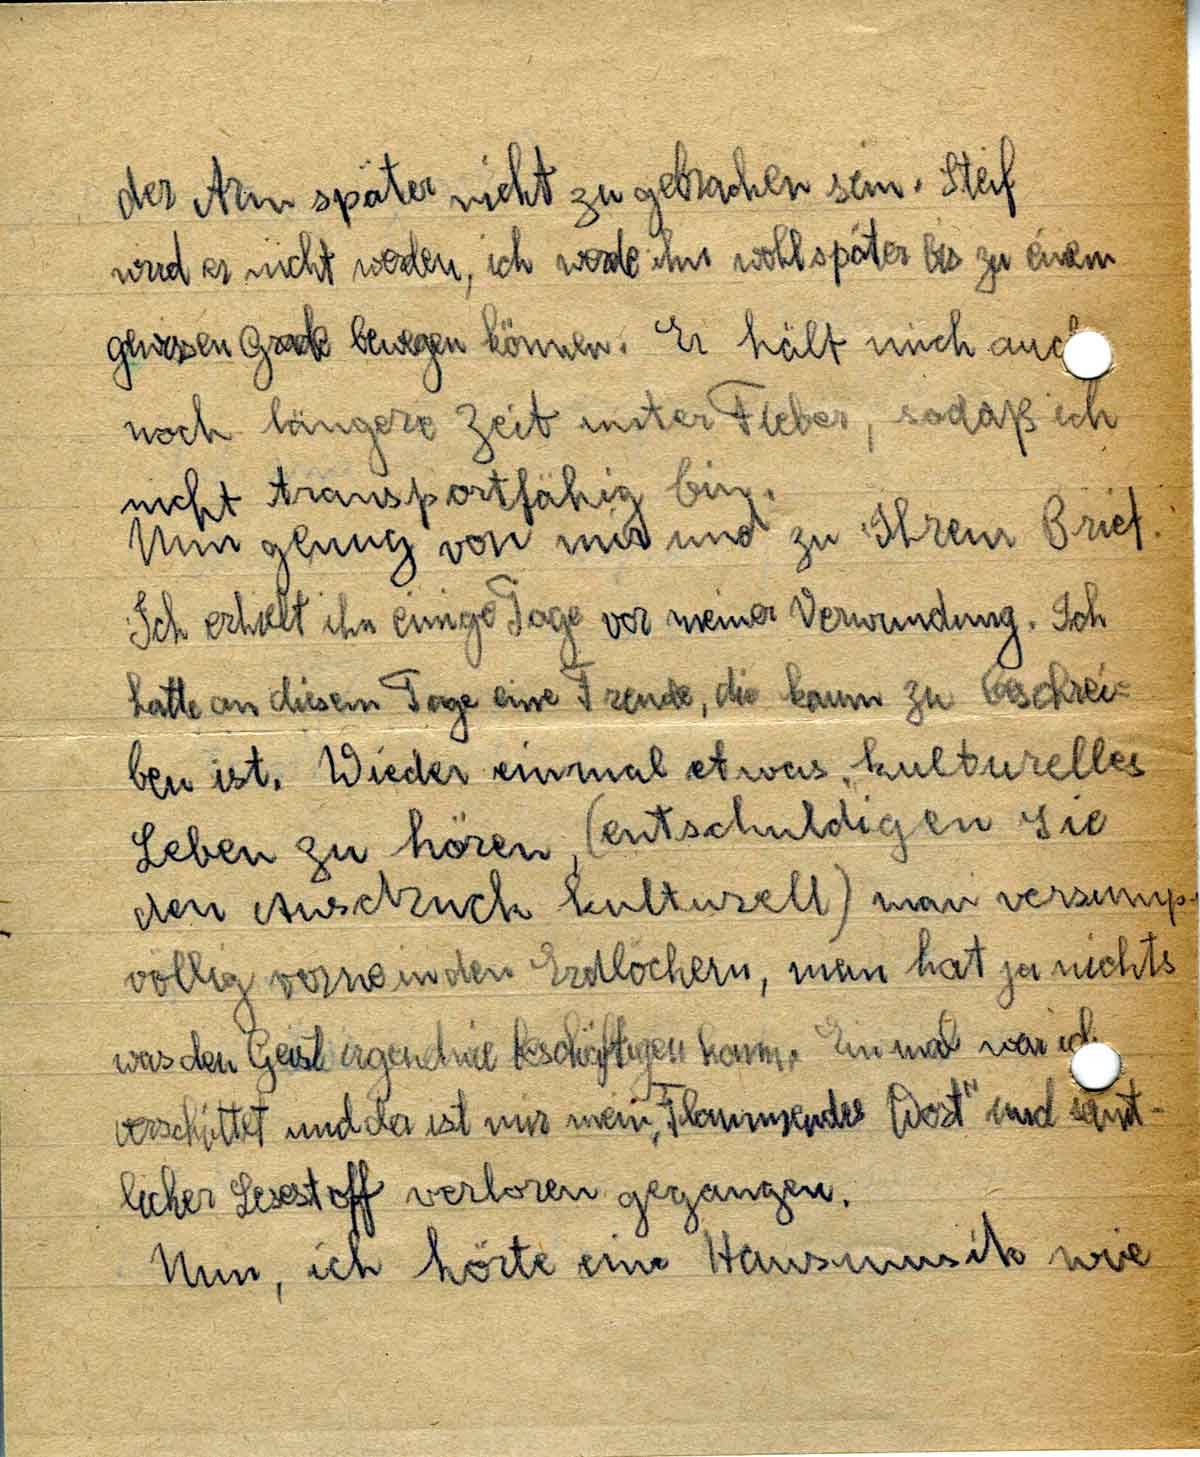 der Arm später nicht zu gebrauchen sein. Steif
wird er nicht werden, ich werde ihn wohl später bis zu einem
gewissen Grade bewegen können. Er hält mich auch
noch längere Zeit unter Fieber, sodaß ich
nicht transportfähig bin.
Nun genug von mir und zu Ihrem Brief.
Ich erhielt ihn einige Tage vor meiner Verwundung. Ich
hatte an diesem Tage eine Freude, die kaum zu beschrei=
ben ist. Wieder einmal etwas „kulturelles
Leben zu hören, (entschuldigen Sie
den Ausdruck kulturell) man versump-
völlig vorne in den Erdlöchern, man hat ja nichts
was den Geist irgendwie beschäftigen kann. Einmal war ich
verschüttet und da ist mir mein „Flammendes Wort" und sämt-
licher Lesestoff verloren gegangen.
Nun, ich hörte eine Hausmusik wie